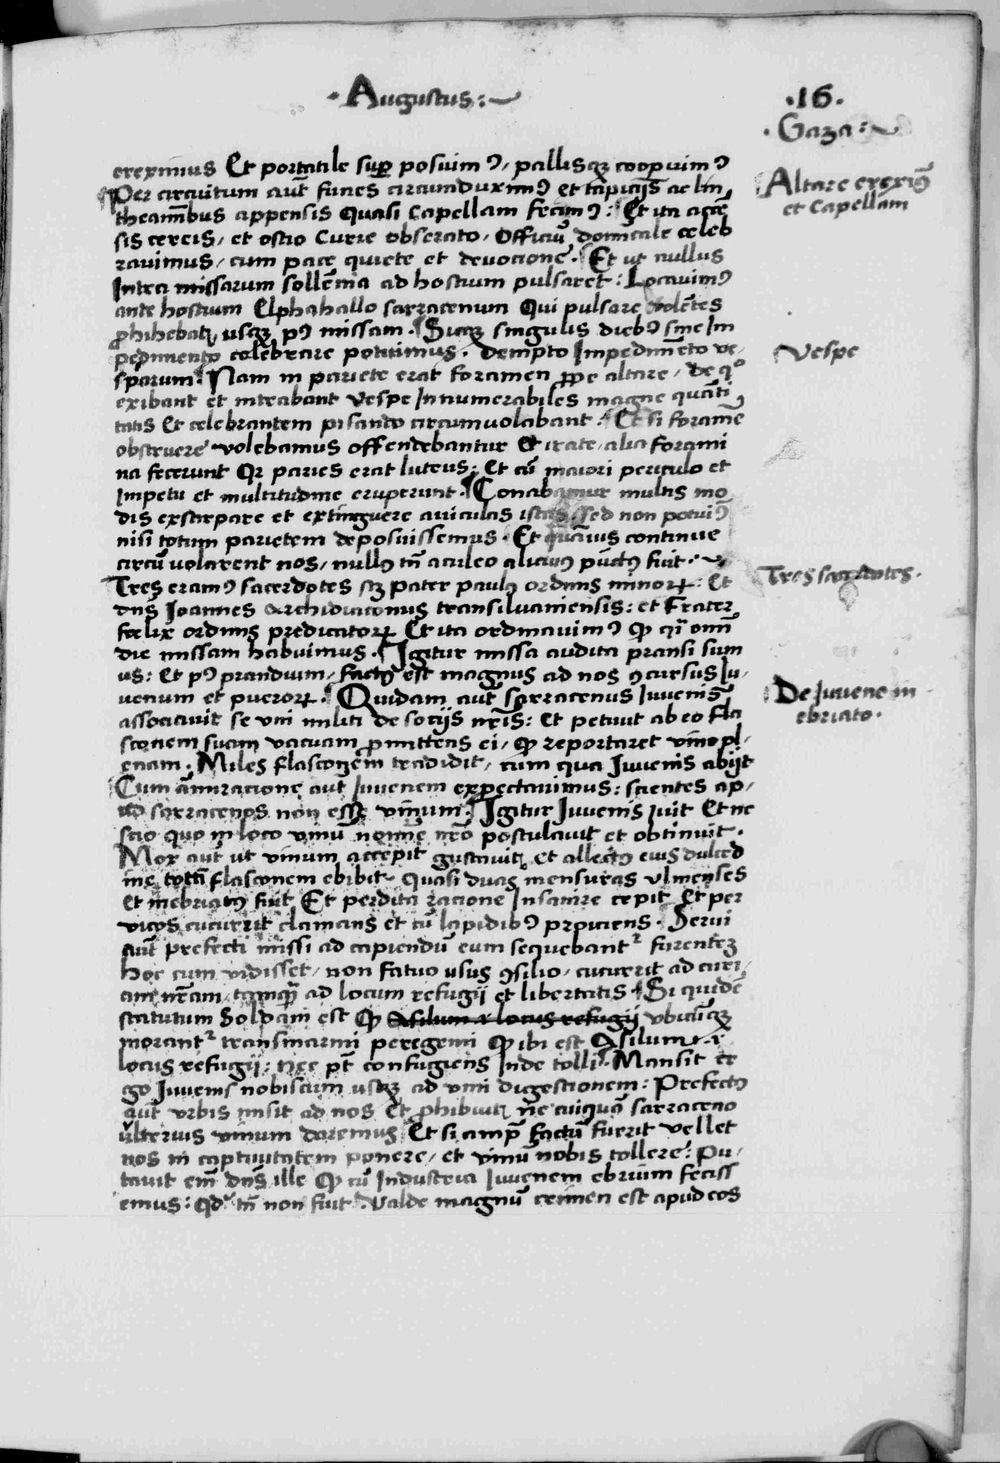 · Augustus :~
· 16 ·
· Gaza :~
erexim̄us Et portatile sup̱ posuimꝰ, pallisqꝫ cooperuimꝰ
Per circuitum aut̄ funes circumduximꝰ et tapicijs ac lin
theaminibus appensis quasi Capellam fecimꝰ : Et ita accē
sis cereis, et ostio Curie obserato, Officiū dominicale celeb
ravimus, cum pace quiete et devocione. Et ut nullus
Intra missarum sollēnia ad hostium pulsaret : Locavimꝰ
ante hostium Elphahallo sarracenum Qui pulsare volētes
ꝓhibebat, usqꝫ pꝰ missam. Sicqꝫ singulis diebꝰ sine Im
pedimento celebrare potuimus. dempto Impedimēto ve,
sparum. Nam in pariete erat foramen ꝓpe altare, de qº
exibant et intrabant Vespe Innumerabiles magne quāti
tatis Et celebrantem pisando circumvolabant. Et si foramē
obstruere volebamus offendebantur Et irate, alia forami
na fecerunt Qr paries erat luteus: Et cū maiori periculo et
impetu et multitudine eruperunt. Conabamur multis mo
dis exstirpare et extinguere aviculas istas, sed non potuimꝰ
nisi totum parietem deposuissemus. Et quāvis continue
circū volarent nos, nullꝰ tn̄ aculeo alicuiꝰ pūctꝰ fuit. ~
Tres eramꝰ sacerdotes scꝫ pater paulꝰ ordinis minorꝝ: Et
dn̄s Joannes Archidiaconus transilvaniensis: et Frater
fœlix ordinis predicatorꝝ Et ita ordinavimꝰ qꝫ qͣ om̄i
die missam habuimus. Igitur missa audita pransi sum
us: Et pꝰ prandium, factꝰ est magnus ad nos ꝯcursus Ju,
venum et puerorꝝ. Quidam aut̄ sarracenus Juvenis
associavit se vni militi de socijs nr̄is: Et petivit ab eo fla
sconem suam vacuam ꝓmittens ei, qꝫ reportaret vino pl,
enam. Miles flasconem tradidit, cum qua Juvenis abijt
Cum āmiracione aut̄ Juvenem expectavimus: scientes ap,
ud sarracenos non esse vinum. Igitur Juvenis ivit Et ne
scio quo in loco vinū nomine nr̄o postulavit et obtinuit.
Mox aut̄ ut vinum accepit gustavit, et allectꝰ eius dulced
ine totā flasconem ebibit. Quasi duas mensuras vlmenses
Et inebriatꝰ fuit Et perdita racione Insanire cepit Et per
vicos cucurrit clamans et cū lapidibꝰ proiciens. Servi
aut̄ prefecti missi ad capiendū eum sequebant̉ furentē
hoc cum vidisset, non fatuo usus ꝯsilio, cucurrit ad curi,
am nr̄am, tanqͣ ad locum refugij et libertatis. Si quidē
statutum Soldani est qꝫ Asilum et locus refugij ubicūqꝫ
morant̉ transmarini peregrini qꝫ ibi est Asilum et
locus refugij: nec pt̄ confugiens Inde tolli. Mansit er
go Juvenis nobiscum usqꝫ ad vini digestionem: Prefectꝰ
aut̄ vrbis misit ad nos Et ꝓhibuit, ne cuiquā sarraceno
vlterius vinum daremus Et si amp̄ factū fuerit vellet
nos in captivitatem ponere, et vinū nobis tollere: Pu,
tavit em̄ dn̄s ille qꝫ cū Industria Juvenem ebrium feciss
emus: Qd̉ tn̄ non fuit. Valde magnū crimen est apud eos
Altare ereximꝰ
et Capellam
Vespe
Tres sacerdotes.
De Juvene in
ebriato.